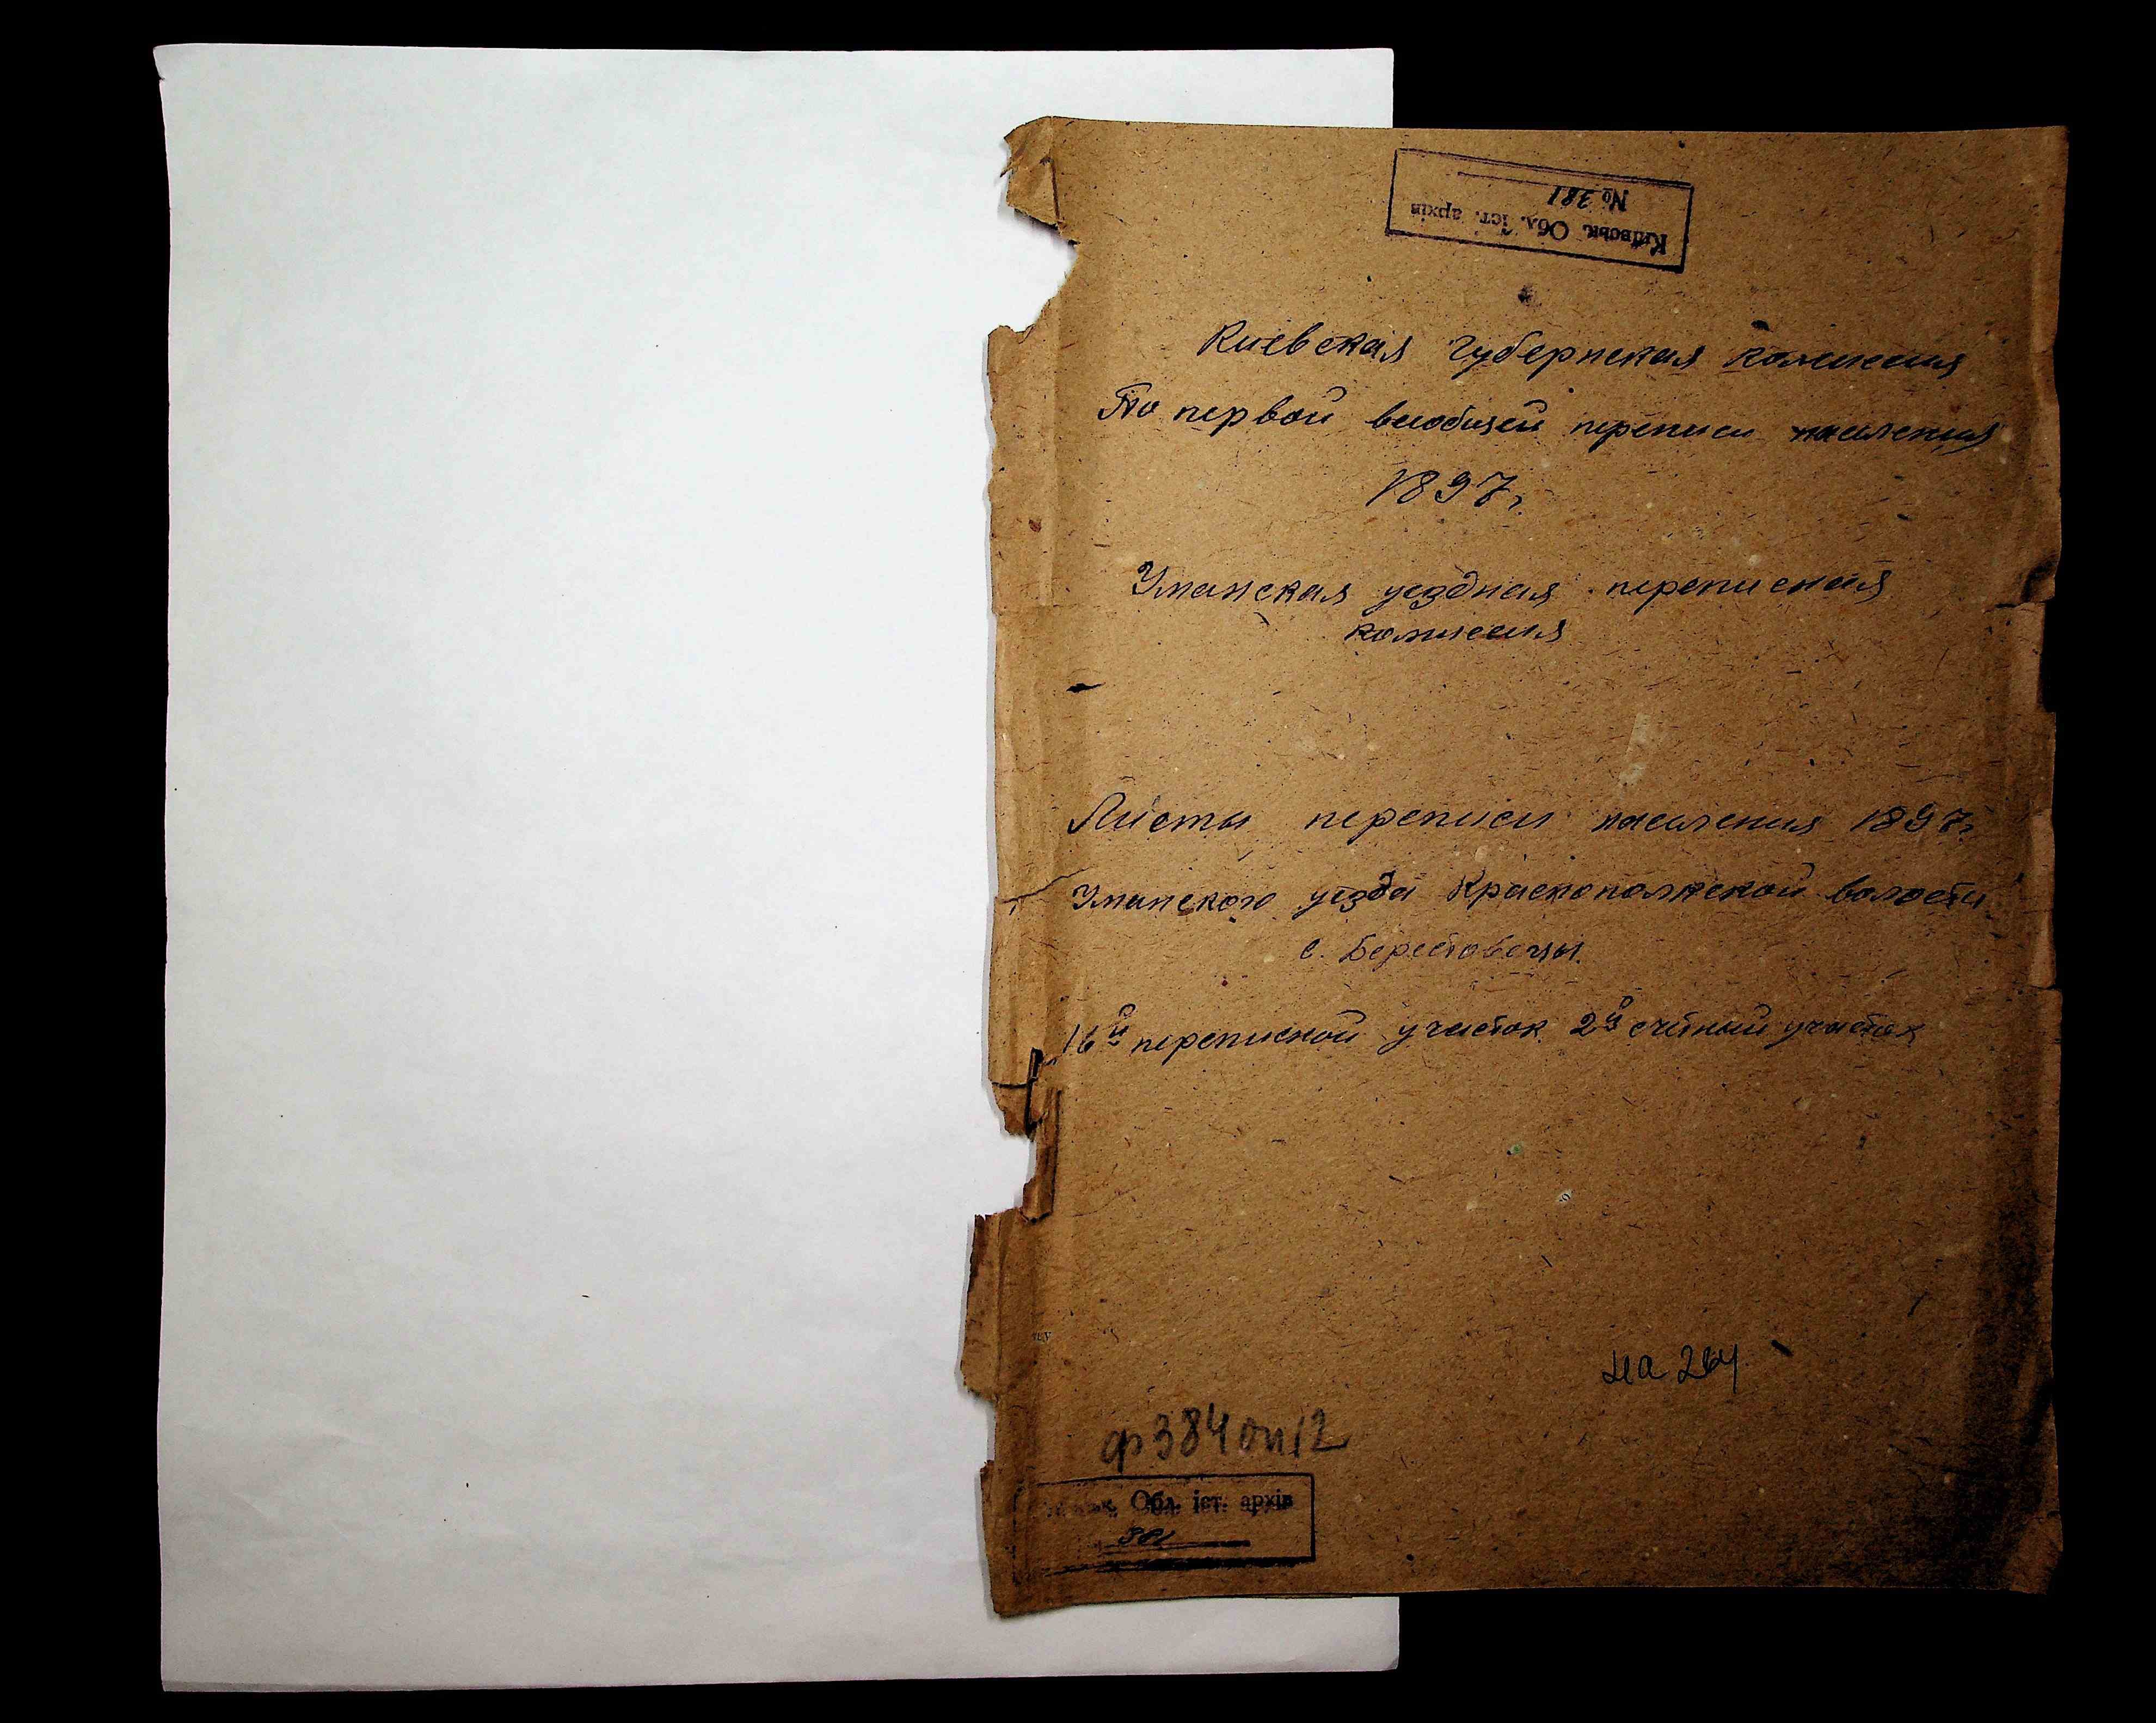 Київськ. Обл. іст. архів
№ 381
Киевская губернская комиссия
По первой всеобщей переписи населения
1897г.
Уманская уездная переписная
комиссия
Листы переписи населения 1897г.
Уманского уезда Краснополкской волости
с. Берестовецы.
16й переписной участок 2й счётный участок
на 264
ф384 оп12
Обл. іст. архів
381